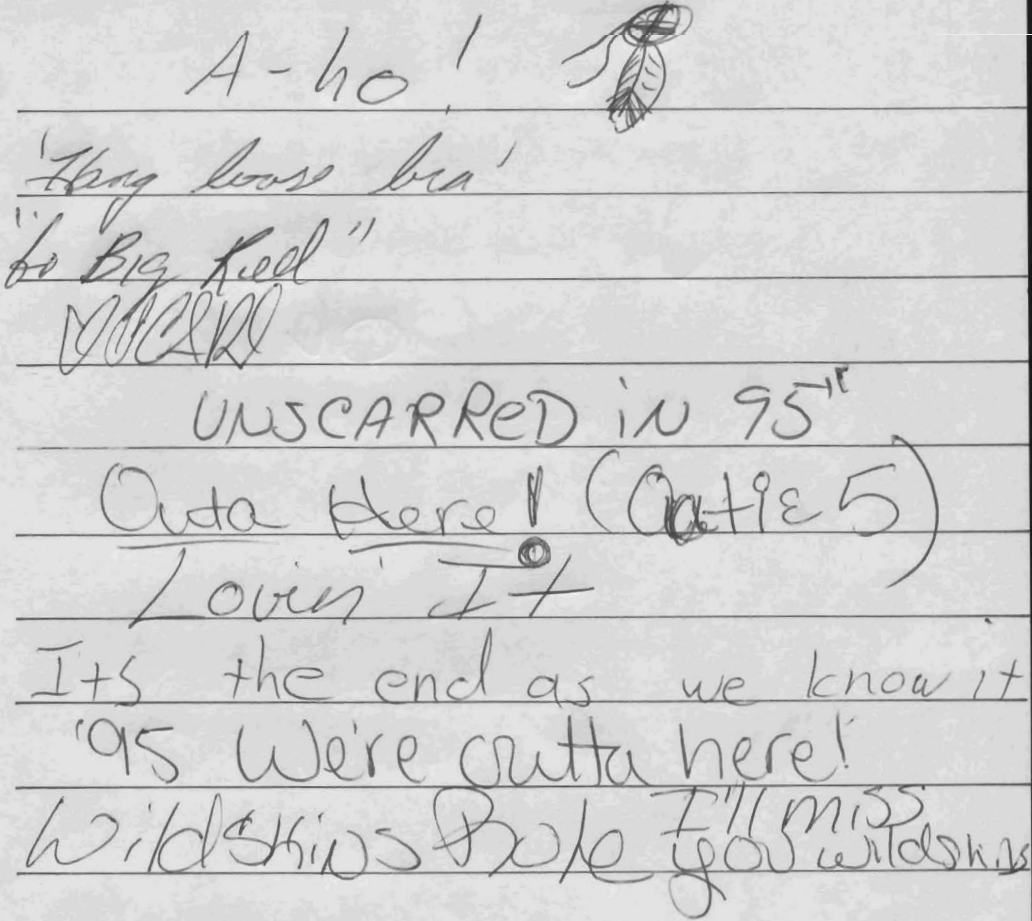 A-ho!
'Hang loose bra'
"to Big Red"
UNSCARRED iN 95"
Outa Here! (Oatie 5)
Lovin' It
Its the end as we know it
'95 We're outta here!
Wildskins Rule I'll miss
you wildskins